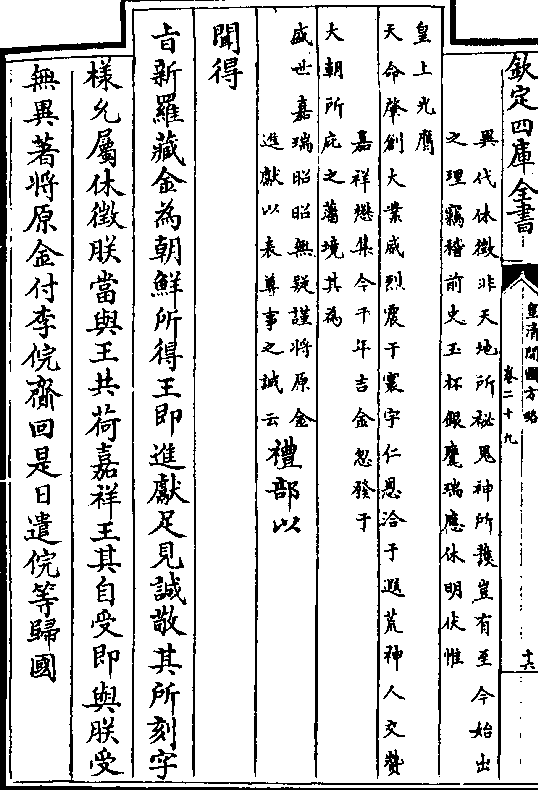 欽定四庫全書
皇清開國方略
卷二十九
十六
異代休徵非天地所祕鬼神所護豈有至今始出
之理竊稽前史玉杯銀甕瑞應休明伏惟
皇上光膺
天命肇創大業威烈震于寰宇仁恩洽于遐荒神人交贊
嘉祥懋集今千年吉金忽發于
大朝所庇之藩境其為
盛世嘉瑞昭昭無疑謹將原金
進獻以表尊事之誠云禮部以
聞得
㫖新羅藏金為朝鮮所得王即進獻足見誠敬其所刻字
樣允屬休徵朕當與王共荷嘉祥王其自受即與朕受
無異著將原金付李俒齎回是日遣俒等歸國